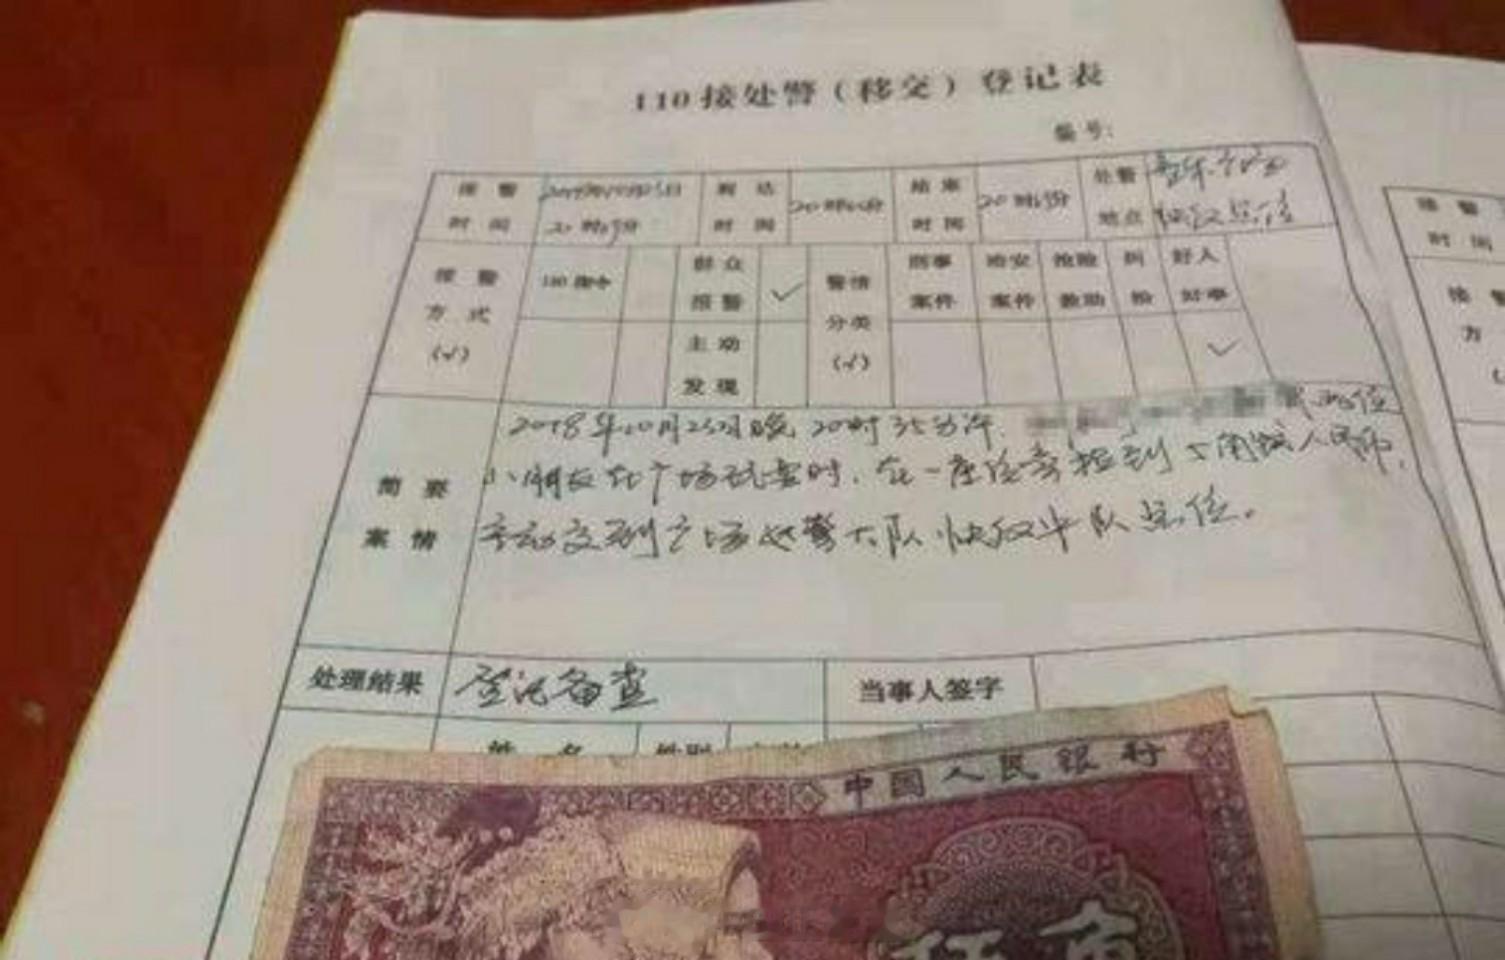 110接处警（移交）登记表
编号：
接警时间 20时 分 到达时间 20时 分 结束时间 20时 分 处警地点
报警方式（√） 110指令 群众报警 ✓ 警情分类（√） 刑事案件 治安案件 抢险救助 纠纷 好人好事 ✓
主动发现
简要案情
2018年10月25日晚20时35分许 两位
小朋友在广场玩耍时，在一座位旁捡到5角钱人民币，
主动交到广场处警大队快反中队岗位。
处理结果 登记备查 当事人签字
姓名 性别
中国人民银行
伍角
接警时间
接警方